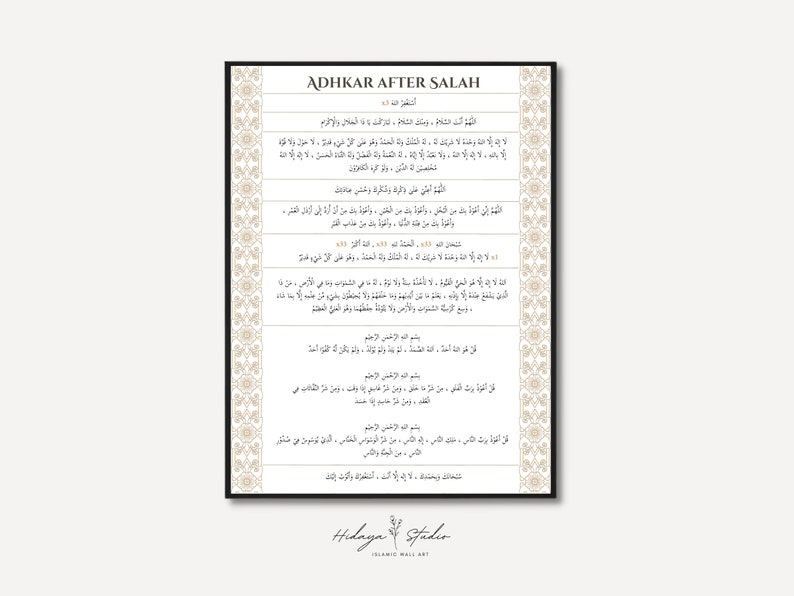 Adhkar after Salah
أَسْتَغْفِرُ اللهَ x3
اَللَّهُمَّ أَنْتَ السَّلَامُ ، وَمِنْكَ السَّلَامُ ، تَبَارَكْتَ يَا ذَا الْجَلَالِ وَالْإِكْرَامِ
لَا إِلٰهَ إِلَّا اللهُ وَحْدَهُ لَا شَرِيْكَ لَهُ ، لَهُ الْمُلْكُ وَلَهُ الْحَمْدُ وَهُوَ عَلَىٰ كُلِّ شَيْءٍ قَدِيْرٌ ، لَا حَوْلَ وَلَا قُوَّةَ
إِلَّا بِاللهِ ، لَا إِلٰهَ إِلَّا اللهُ ، وَلَا نَعْبُدُ إِلَّا إِيَّاهُ ، لَهُ النِّعْمَةُ وَلَهُ الْفَضْلُ وَلَهُ الثَّنَاءُ الْحَسَنُ ، لَا إِلٰهَ إِلَّا اللهُ
مُخْلِصِيْنَ لَهُ الدِّيْنَ ، وَلَوْ كَرِهَ الْكَافِرُوْنَ
اَللَّهُمَّ أَعِنِّيْ عَلَىٰ ذِكْرِكَ وَشُكْرِكَ وَحُسْنِ عِبَادَتِكَ
اَللَّهُمَّ إِنِّيْ أَعُوْذُ بِكَ مِنَ الْبُخْلِ ، وَأَعُوْذُ بِكَ مِنَ الْجُبْنِ ، وَأَعُوْذُ بِكَ مِنْ أَنْ أُرَدَّ إِلَىٰ أَرْذَلِ الْعُمُرِ ،
وَأَعُوْذُ بِكَ مِنْ فِتْنَةِ الدُّنْيَا ، وَأَعُوْذُ بِكَ مِنْ عَذَابِ الْقَبْرِ
سُبْحَانَ اللهِ x33 , اَلْحَمْدُ لِلهِ x33 , اَللهُ أَكْبَرُ x33
x1 لَا إِلٰهَ إِلَّا اللهُ وَحْدَهُ لَا شَرِيْكَ لَهُ ، لَهُ الْمُلْكُ وَلَهُ الْحَمْدُ ، وَهُوَ عَلَىٰ كُلِّ شَيْءٍ قَدِيْرٌ
اَللهُ لَا إِلٰهَ إِلَّا هُوَ الْحَيُّ الْقَيُّوْمُ ، لَا تَأْخُذُهُ سِنَةٌ وَلَا نَوْمٌ ، لَهُ مَا فِي السَّمٰوَاتِ وَمَا فِي الْأَرْضِ ، مَنْ ذَا
الَّذِيْ يَشْفَعُ عِنْدَهُ إِلَّا بِإِذْنِهِ ، يَعْلَمُ مَا بَيْنَ أَيْدِيْهِمْ وَمَا خَلْفَهُمْ وَلَا يُحِيْطُوْنَ بِشَيْءٍ مِّنْ عِلْمِهِ إِلَّا بِمَا شَاءَ
، وَسِعَ كُرْسِيُّهُ السَّمٰوَاتِ وَالْأَرْضَ وَلَا يَئُوْدُهُ حِفْظُهُمَا وَهُوَ الْعَلِيُّ الْعَظِيْمُ
بِسْمِ اللهِ الرَّحْمٰنِ الرَّحِيْمِ
قُلْ هُوَ اللهُ أَحَدٌ ، اَللهُ الصَّمَدُ ، لَمْ يَلِدْ وَلَمْ يُوْلَدْ ، وَلَمْ يَكُنْ لَّهُ كُفُوًا أَحَدٌ
بِسْمِ اللهِ الرَّحْمٰنِ الرَّحِيْمِ
قُلْ أَعُوْذُ بِرَبِّ الْفَلَقِ ، مِنْ شَرِّ مَا خَلَقَ ، وَمِنْ شَرِّ غَاسِقٍ إِذَا وَقَبَ ، وَمِنْ شَرِّ النَّفَّاثَاتِ فِي
الْعُقَدِ ، وَمِنْ شَرِّ حَاسِدٍ إِذَا حَسَدَ
بِسْمِ اللهِ الرَّحْمٰنِ الرَّحِيْمِ
قُلْ أَعُوْذُ بِرَبِّ النَّاسِ ، مَلِكِ النَّاسِ ، إِلٰهِ النَّاسِ ، مِنْ شَرِّ الْوَسْوَاسِ الْخَنَّاسِ ، الَّذِيْ يُوَسْوِسُ فِيْ صُدُوْرِ
النَّاسِ ، مِنَ الْجِنَّةِ وَالنَّاسِ
سُبْحَانَكَ وَبِحَمْدِكَ ، لَا إِلٰهَ إِلَّا أَنْتَ ، أَسْتَغْفِرُكَ وَأَتُوْبُ إِلَيْكَ
Hidaya Studio
ISLAMIC WALL ART